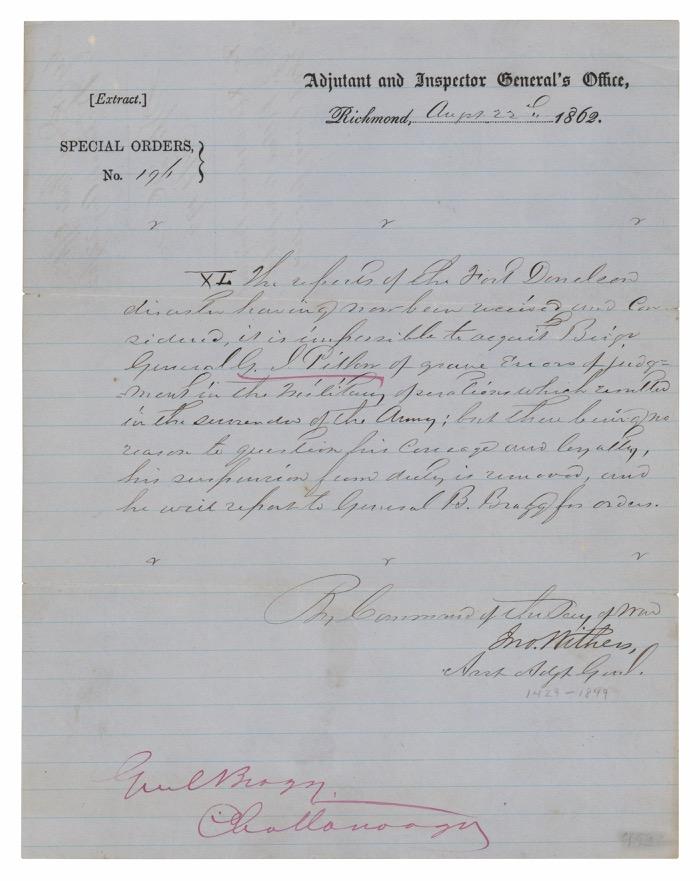 Adjutant and Inspector General's Office,
[Extract.]
Richmond, Augt 22d 1862.
SPECIAL ORDERS,
No. 196
XI The reports of the Fort Donelson
disaster having now been received and con-
sidered, it is impossible to acquit Brigr
General G. J Pillow of grave errors of judg-
-ment in the military operations which resulted
in the surrender of the Army; but there being no
reason to question his courage and loyalty,
his suspension from duty is removed, and
he will report to General B. Bragg for orders.
By Command of the Secy of War
Jno. Withers,
Asst Adjt Genl.
1429-1849
Genl Bragg,
Chattanooga